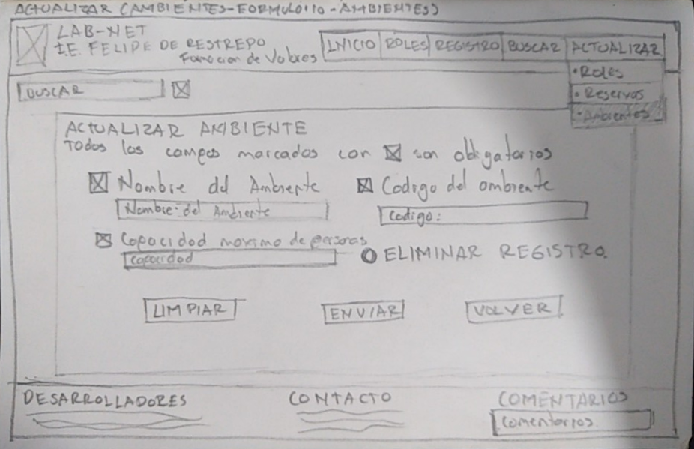 ACTUALIZAR (AMBIENTES-FORMULARIO-AMBIENTES)
LAB-NET
I.E. FELIPE DE RESTREPO
INICIO ROLES REGISTRO BUSCAR ACTUALIZAR
• Roles
• Reservas
• Ambientes
BUSCAR
ACTUALIZAR AMBIENTE
Todos los campos marcados con son obligatorios
Nombre del Ambiente
Nombre del Ambiente
Codigo del ambiente
Codigo:
Capacidad maxima de personas
Capacidad
ELIMINAR REGISTRO
LIMPIAR
ENVIAR
VOLVER
DESARROLLADORES
CONTACTO
COMENTARIOS
Comentarios